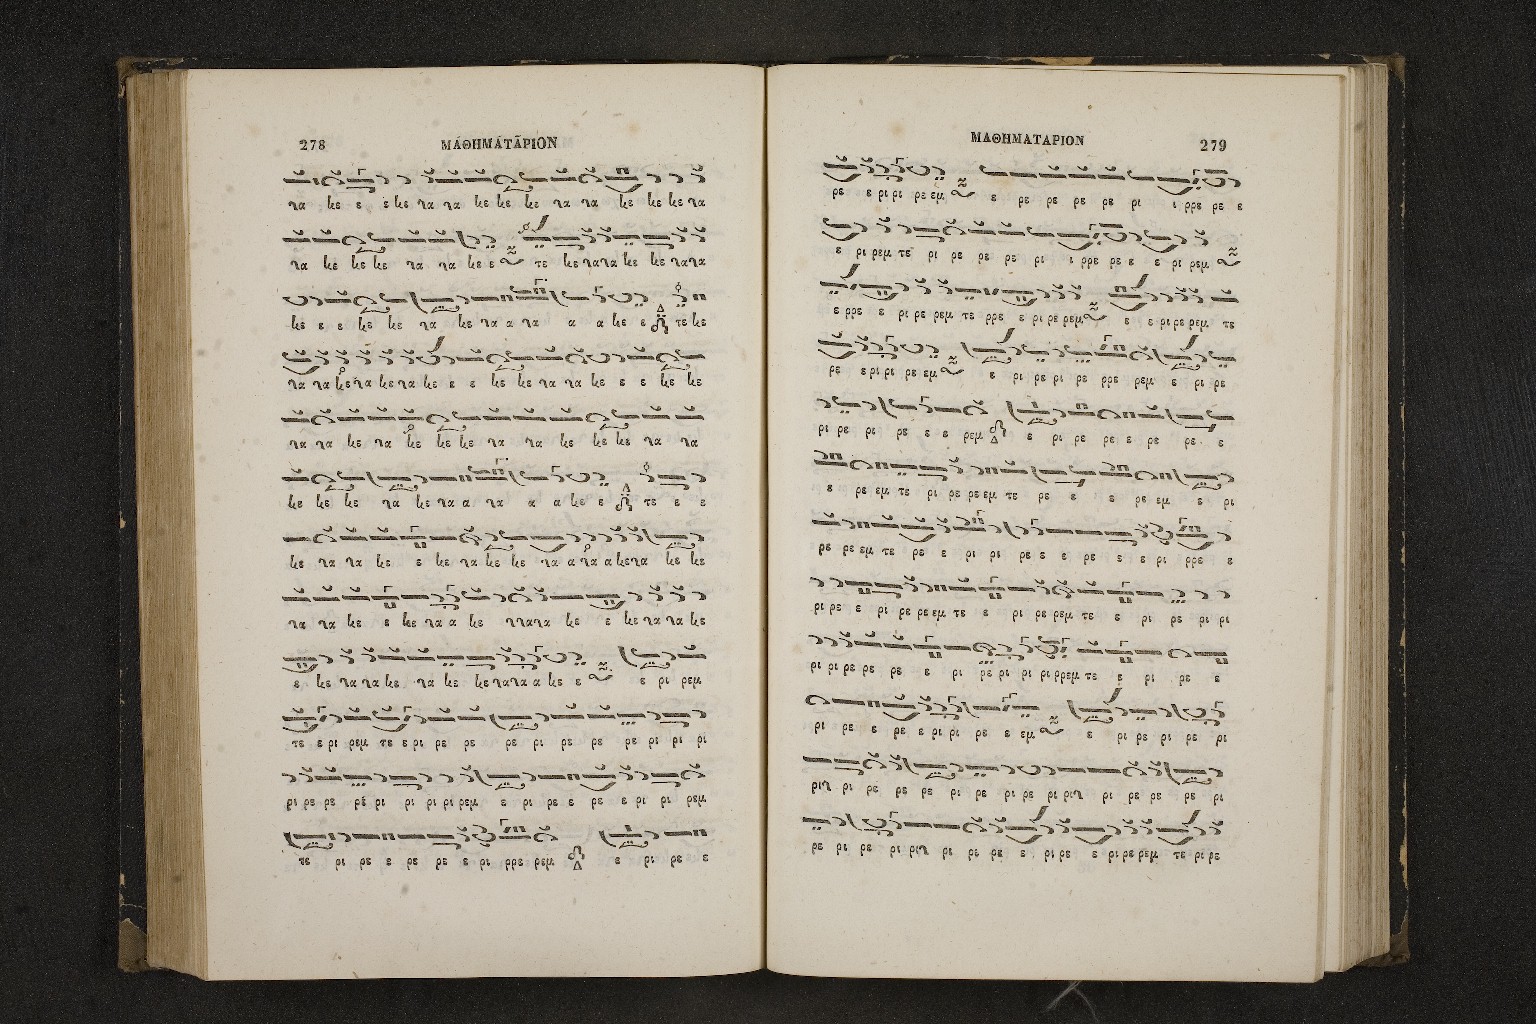 278 ΜΑΘΗΜΑΤΑΡΙΟΝ
να κε ε ε κε να να κε κε κε να να κε κε κε να
να κε κε κε να να κε ε τε κε να να κε κε να να
κε ε ε κε κε να κε να α να α α κε ε τε κε
να να κε να κε να κε ε ε κε κε να να κε ε ε κε κε
να να κε να κε κε κε να να κε κε κε να να
κε κε κε να κε να α να α α κε ε τε ε ε
κε να να κε ε κε να κε κε να α να α κε να κε κε
να να κε ε κε να α κε να να κε ε κε να να κε
ε κε να να κε να κε κε να να α κε ε ε ρι ρεμ
τε ε ρι ρεμ τε ε ρι ρε ρε ρε ρι ρε ρε ρε ρι ρι ρι
ρι ρε ρε ρε ρι ρι ρι ρι ρι ρεμ ε ρι ρε ε ρε ε ρι ρι ρεμ
τε ρι ρε ε ρε ρε ε ρι ρρε ρεμ ε ρι ρε ε
ΜΑΘΗΜΑΤΑΡΙΟΝ 279
ρε ε ρι ρι ρε εμ ε ρε ρε ρε ρε ρι ι ρρε ρε ε
ε ρι ρεμ τε ρι ρε ρε ρε ρι ι ρρε ρε ε ε ρι ρεμ
ε ρρε ε ρι ρε ρεμ τε ρρε ε ρι ρε ρεμ ε ε ρι ρε ρεμ τε
ρε ε ρι ρι ρε εμ ε ρι ρε ρι ρε ρρε ρεμ ε ρι ρε
ρι ρε ρι ρε ε ε ρεμ ε ρι ρε ρε ε ρε ρε ε
ε ρε εμ τε ρι ρε ρε εμ τε ρε ε ε ρε εμ ε ρι
ρε ρε εμ τε ρε ε ρι ρι ρε ε ε ρε ε ε ρι ρρε ε
ρι ρε ε ρι ρε ρε εμ τε ε ρι ρε ρεμ τε ε ρι ρε ρι ρι
ρι ρι ρε ρε ρε ε ρι ρε ρι ρι ρι ρρεμ τε ε ρι ρε ε
ρι ρε ε ρε ε ρι ρι ρε ε εμ ε ρι ρε ρι ρε ρι
ριυ ρι ρε ρε ρε ρι ρε ρι ρε ρι ριυ ρι ρε ρε ρε ρι
ρε ρι ρε ρι ριυ ρι ρε ρε ε ρι ρε ε ρι ρε ρεμ τε ρι ρε